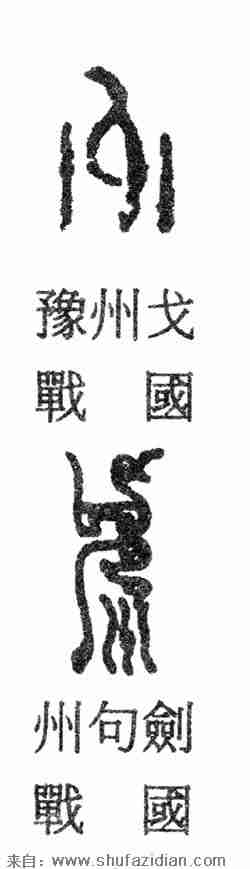 豫州戈
戰國
州句劍
戰國
来自：www.shufazidian.com